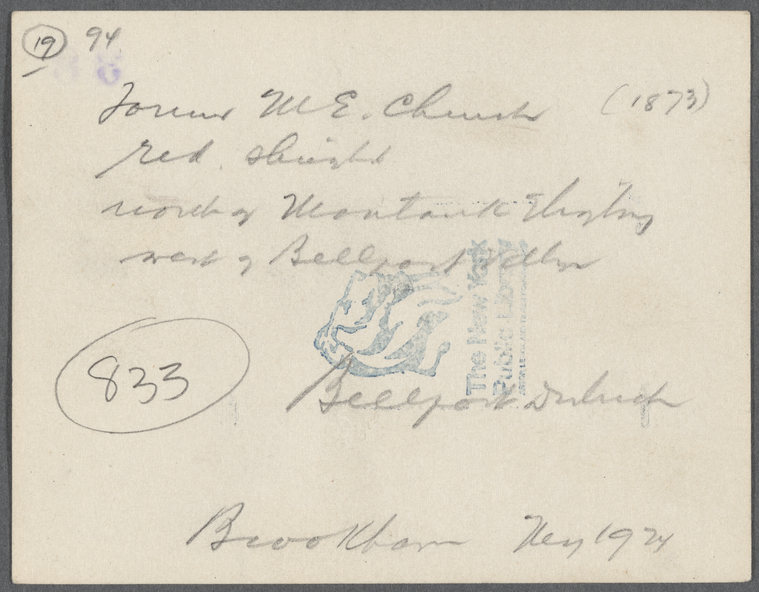 19 94
Former M.E. Church (1873)
red
north of Montauk Highway
west of Bellport
The New York
Public Library
833
Bellport District
Brookhaven 1924